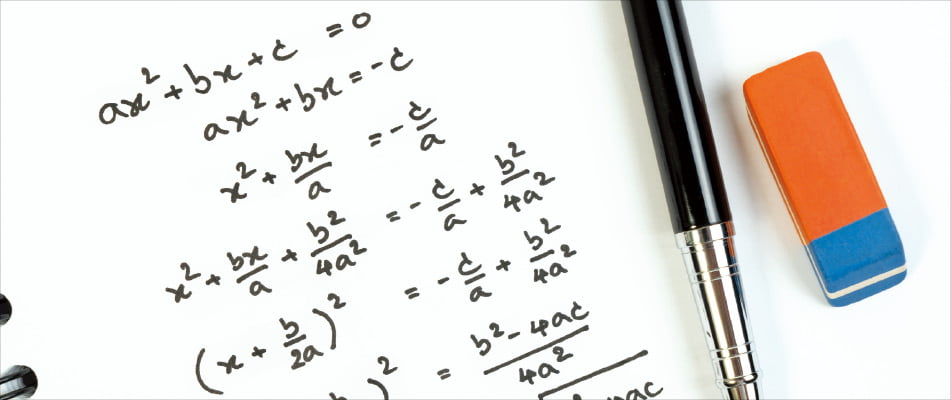 ax² + bx + c = 0
ax² + bx = -c
x² + bx/a = -c/a
x² + bx/a + b²/4a² = -c/a + b²/4a²
(x + b/2a)² = -c/a + b²/4a²
)² = b² - 4ac/4a²